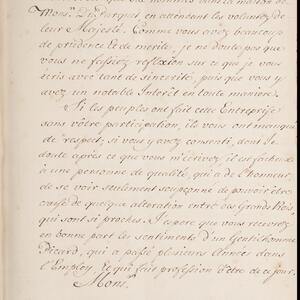 que des hommes dans la maison de
Mons.r Du Parquet, en attendant les volontez de
leur Majesté. Comme vous avez beaucoup
de prudence Et de merite, je ne doute pas que
vous ne fassiez reflexion sur ce que je vous
écris avec tant de sincerité, puis que vous y
avez un notable Interêt en toute maniere.
Si les peuples ont fait cette Entreprise
sans vôtre participation, ils vous ont manqué
de respect; si vous y avez consenti, dont Je
doute après ce que vous m'écrivez, il est facheux
à une personne de qualité, qui a de l'honneur,
de se voir seulement soupçonné de pouvoir être
cause de quelque alteration entre des Grands Rois,
qui sont si proches. J'espere que vous recevrez
en bonne part les sentiments d'un Gentilhomme
Picard, qui a passé plusieurs Années dans
l'Employ, Et qui fait profession d'être de ce jour,
Mons.